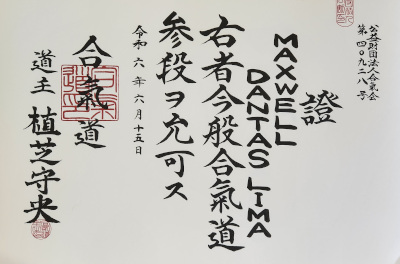 公益財団法人合氣会
第四〇九二八号
證
MAXWELL
DANTAS LIMA
右者今般合氣道
参段ヲ允可ス
令和六年六月十五日
合氣道
道主 植芝守央